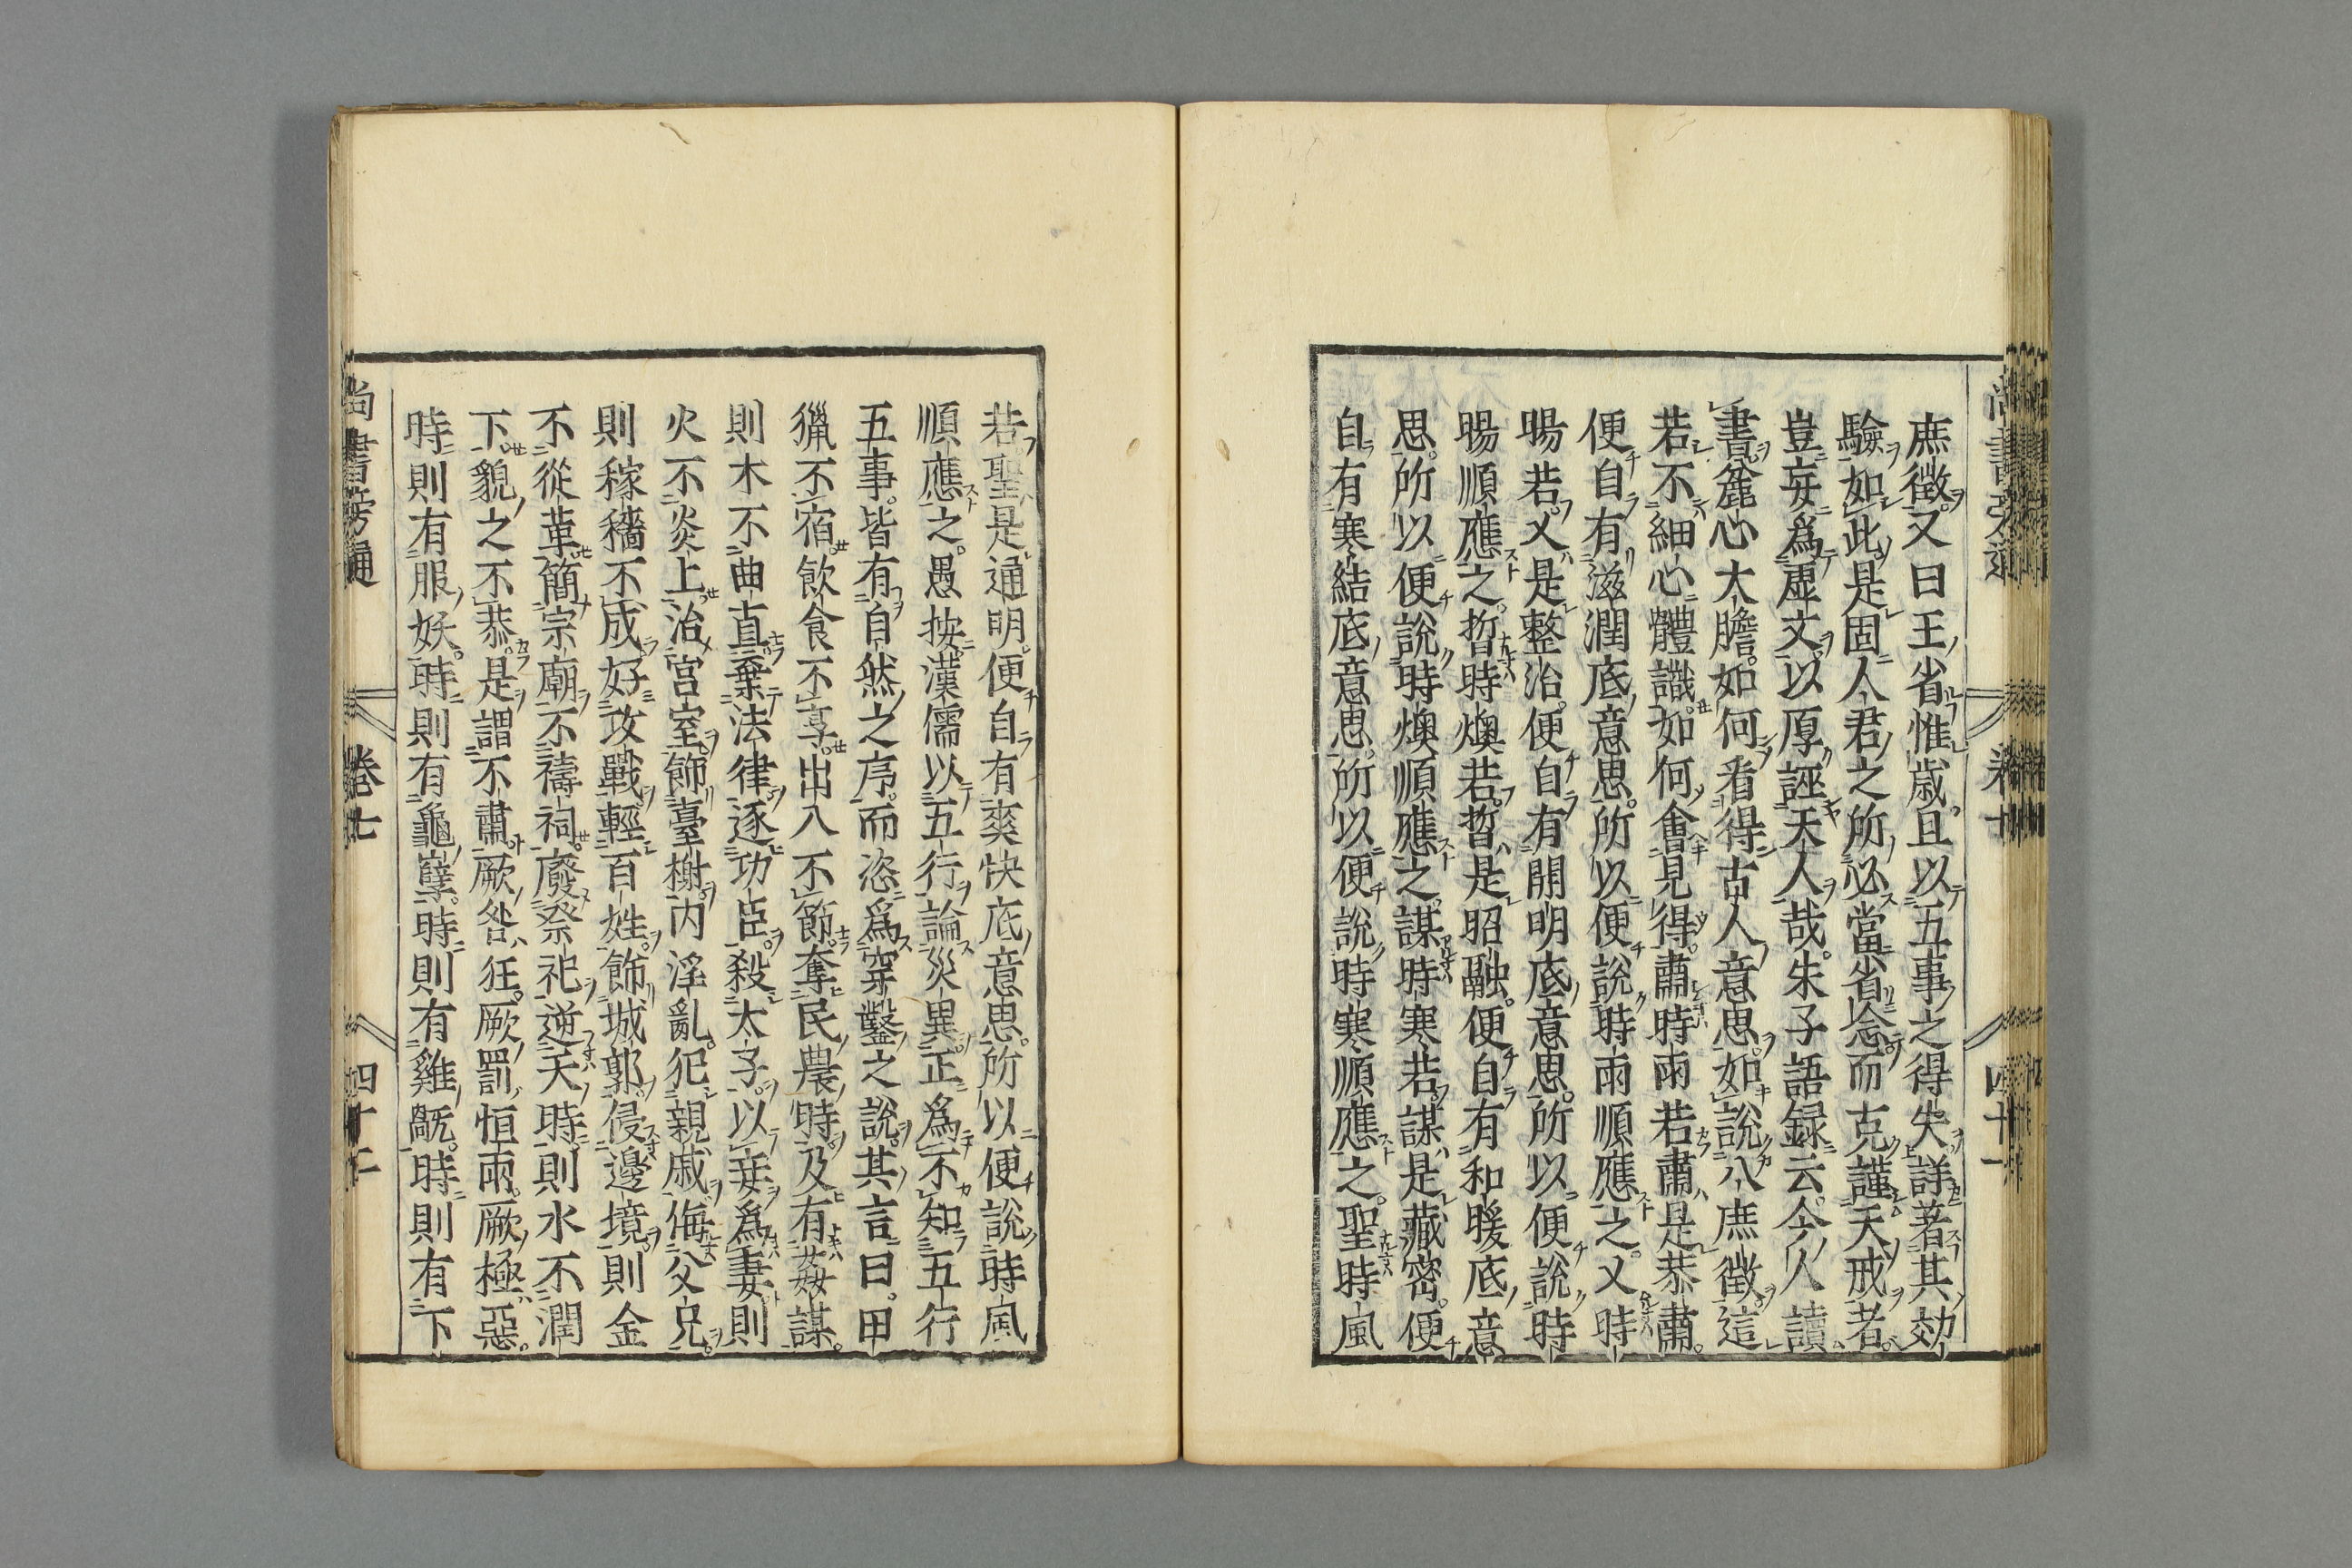 庶徵又曰王省惟歲且以五事之得失詳著其効
驗如此是固人君之所必當省念而克謹天戒者
豈妄爲虚文以厚誣天人哉朱子語録云今人讀
書麄心大膽如何看得古人意思如說八庶徵這
若不細心體識如何會見得肅時雨若肅是恭肅
便自有滋潤底意思所以便說時雨順應之乂時
暘若乂是整治便自有開明底意思所以便說時
暘順應之哲時燠若哲是昭融便自有和暖底意
思所以便說時燠順應之謀時寒若謀是藏密便
自有寒結底意思所以便說時寒順應之聖時風
若聖是通明便自有爽快底意思所以便說時風
順應之愚按漢儒以五行論災異正爲不知五行
五事皆有自然之序而恣爲穿鑿之說其言曰田
獵不宿飲食不享出入不節奪民農時及有姦謀
則木不曲直棄法律逐功臣殺太子以妾爲妻則
火不炎上治宮室飾臺榭内淫亂犯親戚侮父兄
則稼穡不成好攻戰輕百姓飾城郭侵邊境則金
不從革簡宗廟不禱祠廢祭祀逆天時則水不潤
下貌之不恭是謂不肅厥咎狂厥罰恒雨厥極惡
時則有服妖時則有龜孽時則有雞旤時則有下
尚書旁通 卷七 四十二